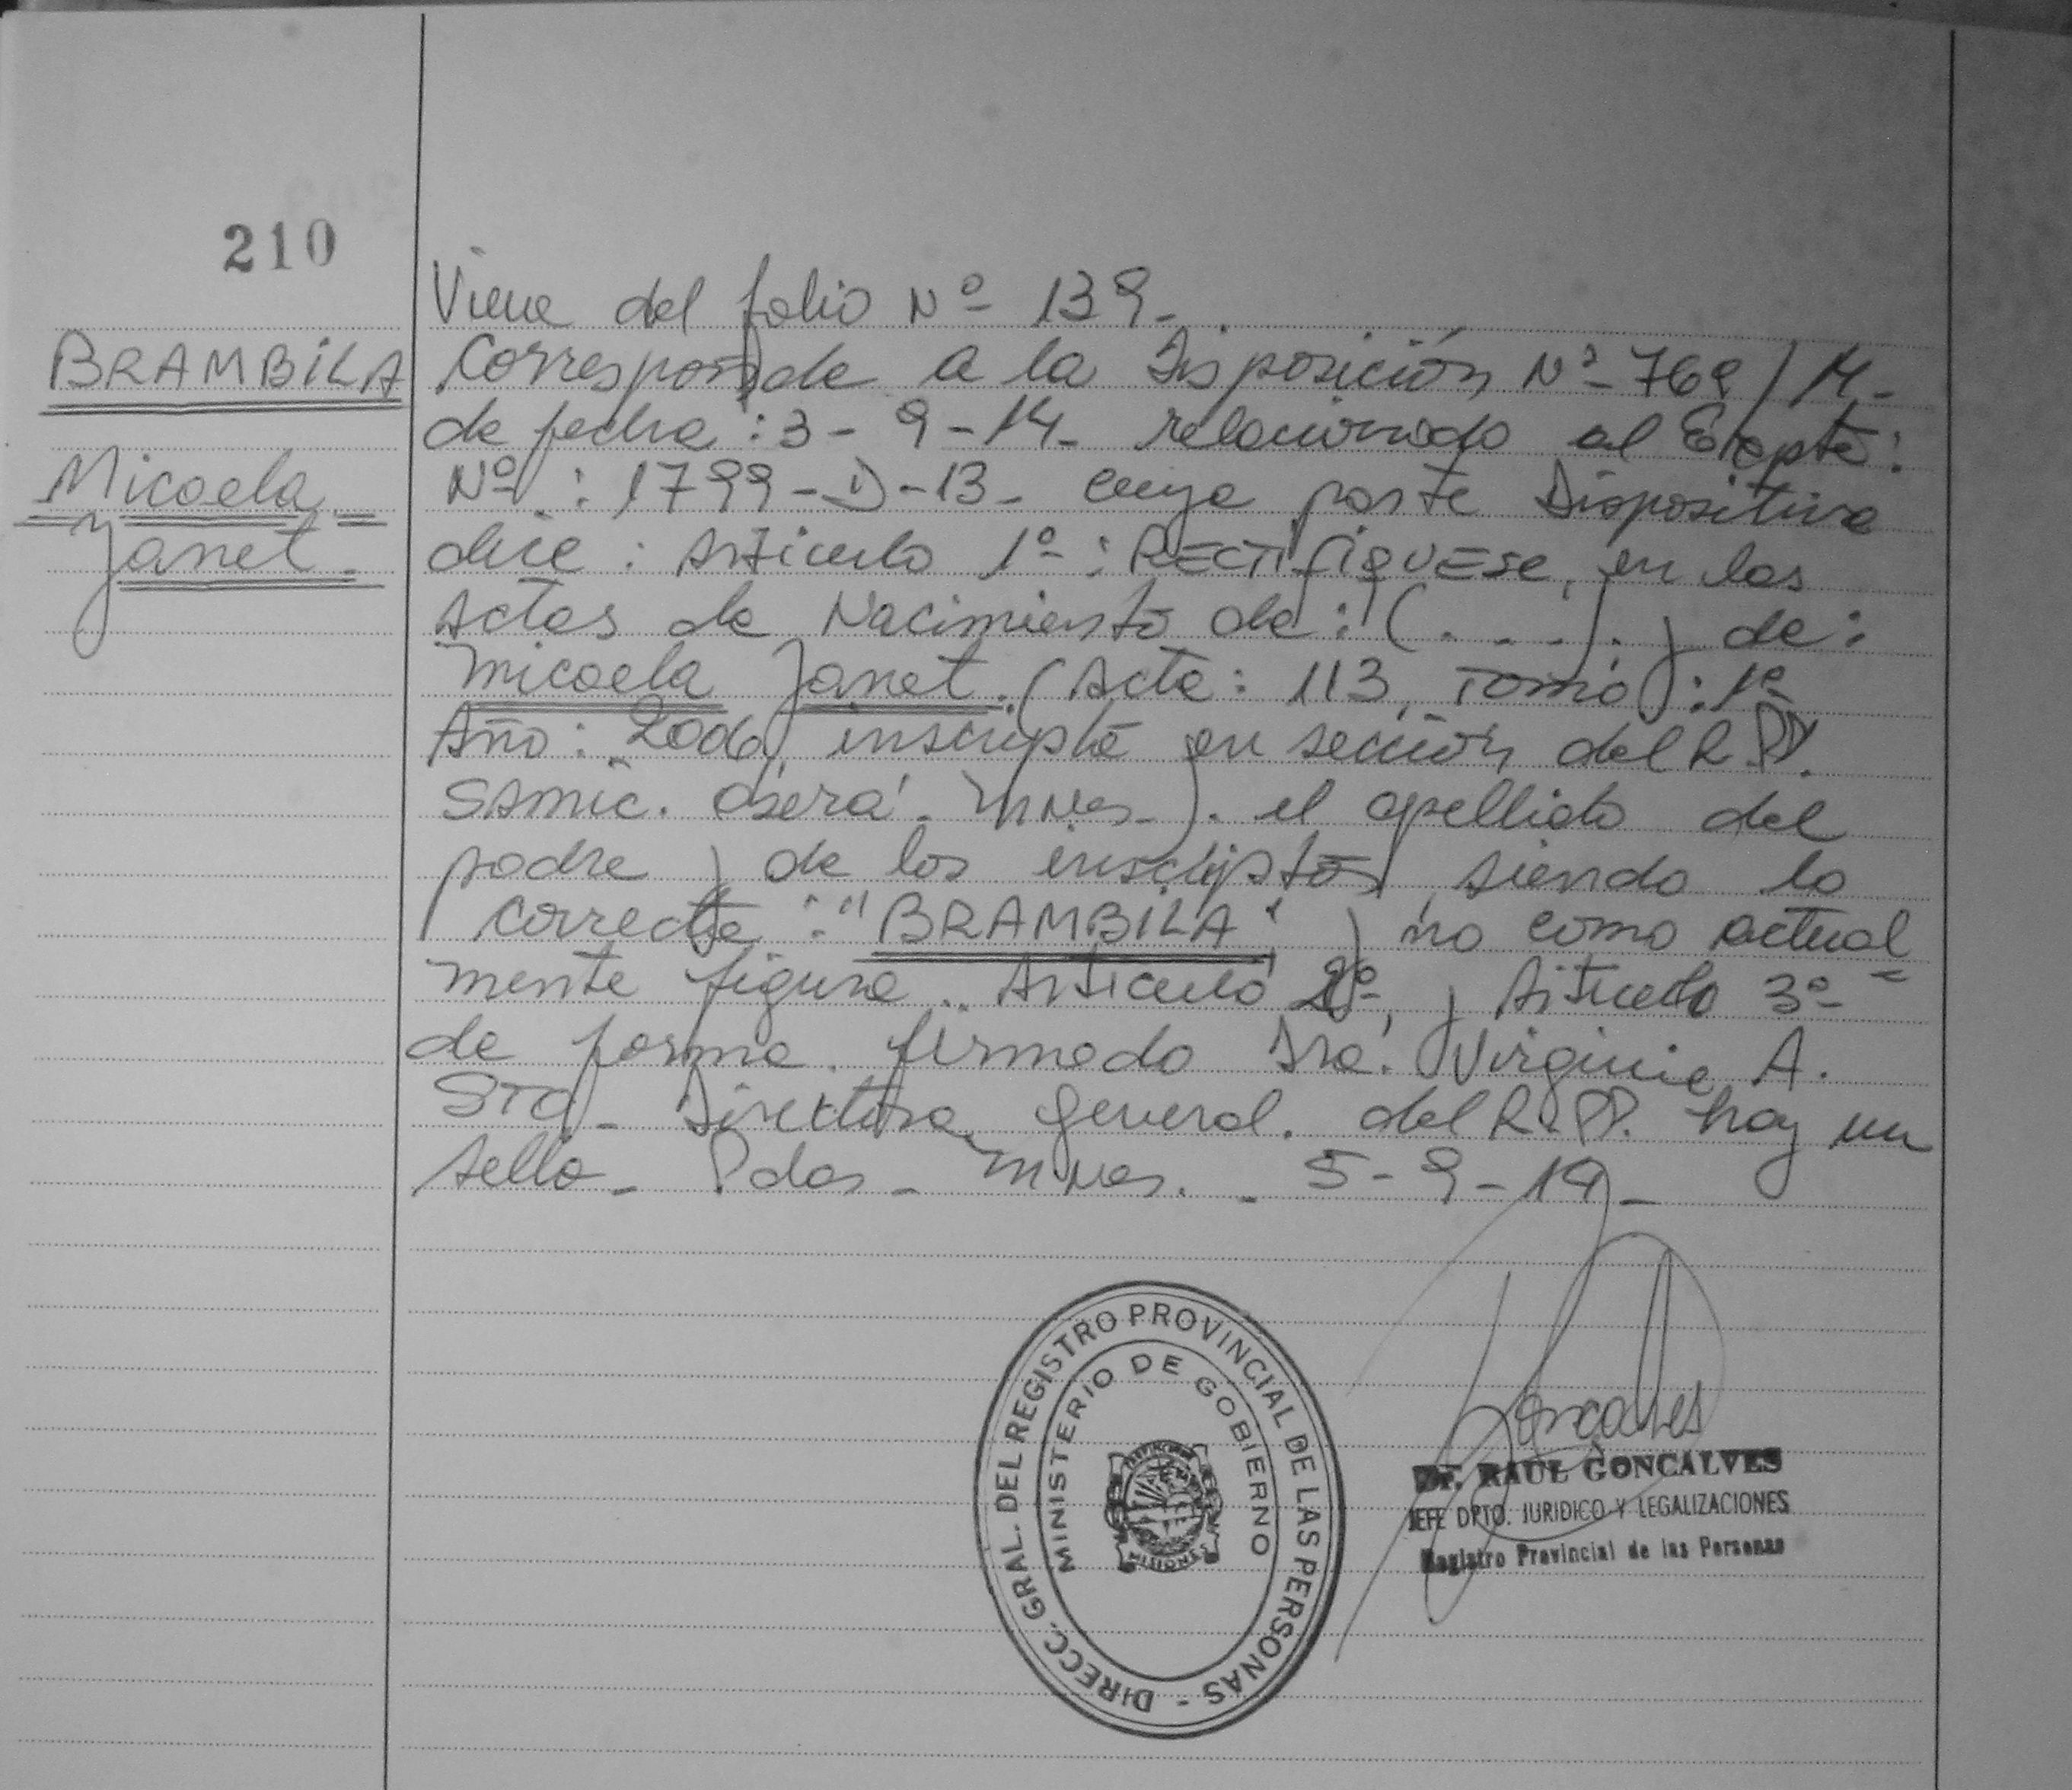 210
BRAMBILA
Micaela
Janet.
Viene del folio Nº 139-
Corresponde a la Disposición Nº 769/14-
de fecha: 3-9-14- relacionado al Expte:
Nº: 1799-D-13- cuya parte Dispositiva
dice: Articulo 1º: RECTIFIQUESE, en las
Actas de Nacimiento de: (....) y de:
Micaela Janet. (Acta: 113, Tomo: 1º
Año: 2006, inscripta en sección del R.PP.
SAMIC. Oberá - Mnes-). el apellido del
padre y de los inscriptos, siendo lo
correcto: "BRAMBILA" y no como actual
mente figura.. Articulo 2º, y Articulo 3º-
de forma. firmado Dra. Virginia A.
Directora general. del R.PP. hay un
sello- Pdas- Mnes. - 5-9-14-
DIRECC. GRAL. DEL REGISTRO PROVINCIAL DE LAS PERSONAS -
MINISTERIO DE GOBIERNO
MISIONES
Goncalves
Dr. RAUL GONCALVES
JEFE DPTO. JURIDICO Y LEGALIZACIONES
Registro Provincial de las Personas